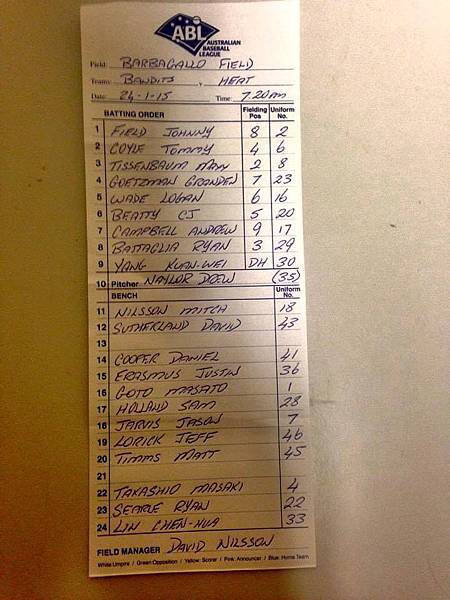 ABL
AUSTRALIAN
BASEBALL
LEAGUE
Field: BARBAGALLO FIELD
Teams: BANDITS v HEAT
Date: 24-1-15 Time: 7.20pm
BATTING ORDER Fielding Pos Uniform No.
1 FIELD JOHNNY 8 2
2 COYLE TOMMY 4 6
3 TISSENBAUM MAXX 2 8
4 GOETZMAN GRANDEN 7 23
5 WADE LOGAN 6 16
6 BEATTY CJ 5 20
7 CAMPBELL ANDREW 9 17
8 BATTAGLIA RYAN 3 29
9 YANG KUAN-WEI DH 30
10 Pitcher NAYLOR DREW (35)
BENCH Uniform No.
11 NILSSON MITCH 18
12 SUTHERLAND DAVID 43
13
14 COOPER DANIEL 41
15 ERASMUS JUSTIN 36
16 GOTO MASATO 1
17 HOLLAND SAM 28
18 JARVIS JASON 7
19 LORICK JEFF 46
20 TIMMS MATT 45
21
22 TAKASHIO MASAKI 4
23 SEARLE RYAN 22
24 LIN CHEN-HUA 33
FIELD MANAGER DAVID NILSSON
White: Umpire / Green: Opposition / Yellow: Scorer / Pink: Announcer / Blue: Home Team